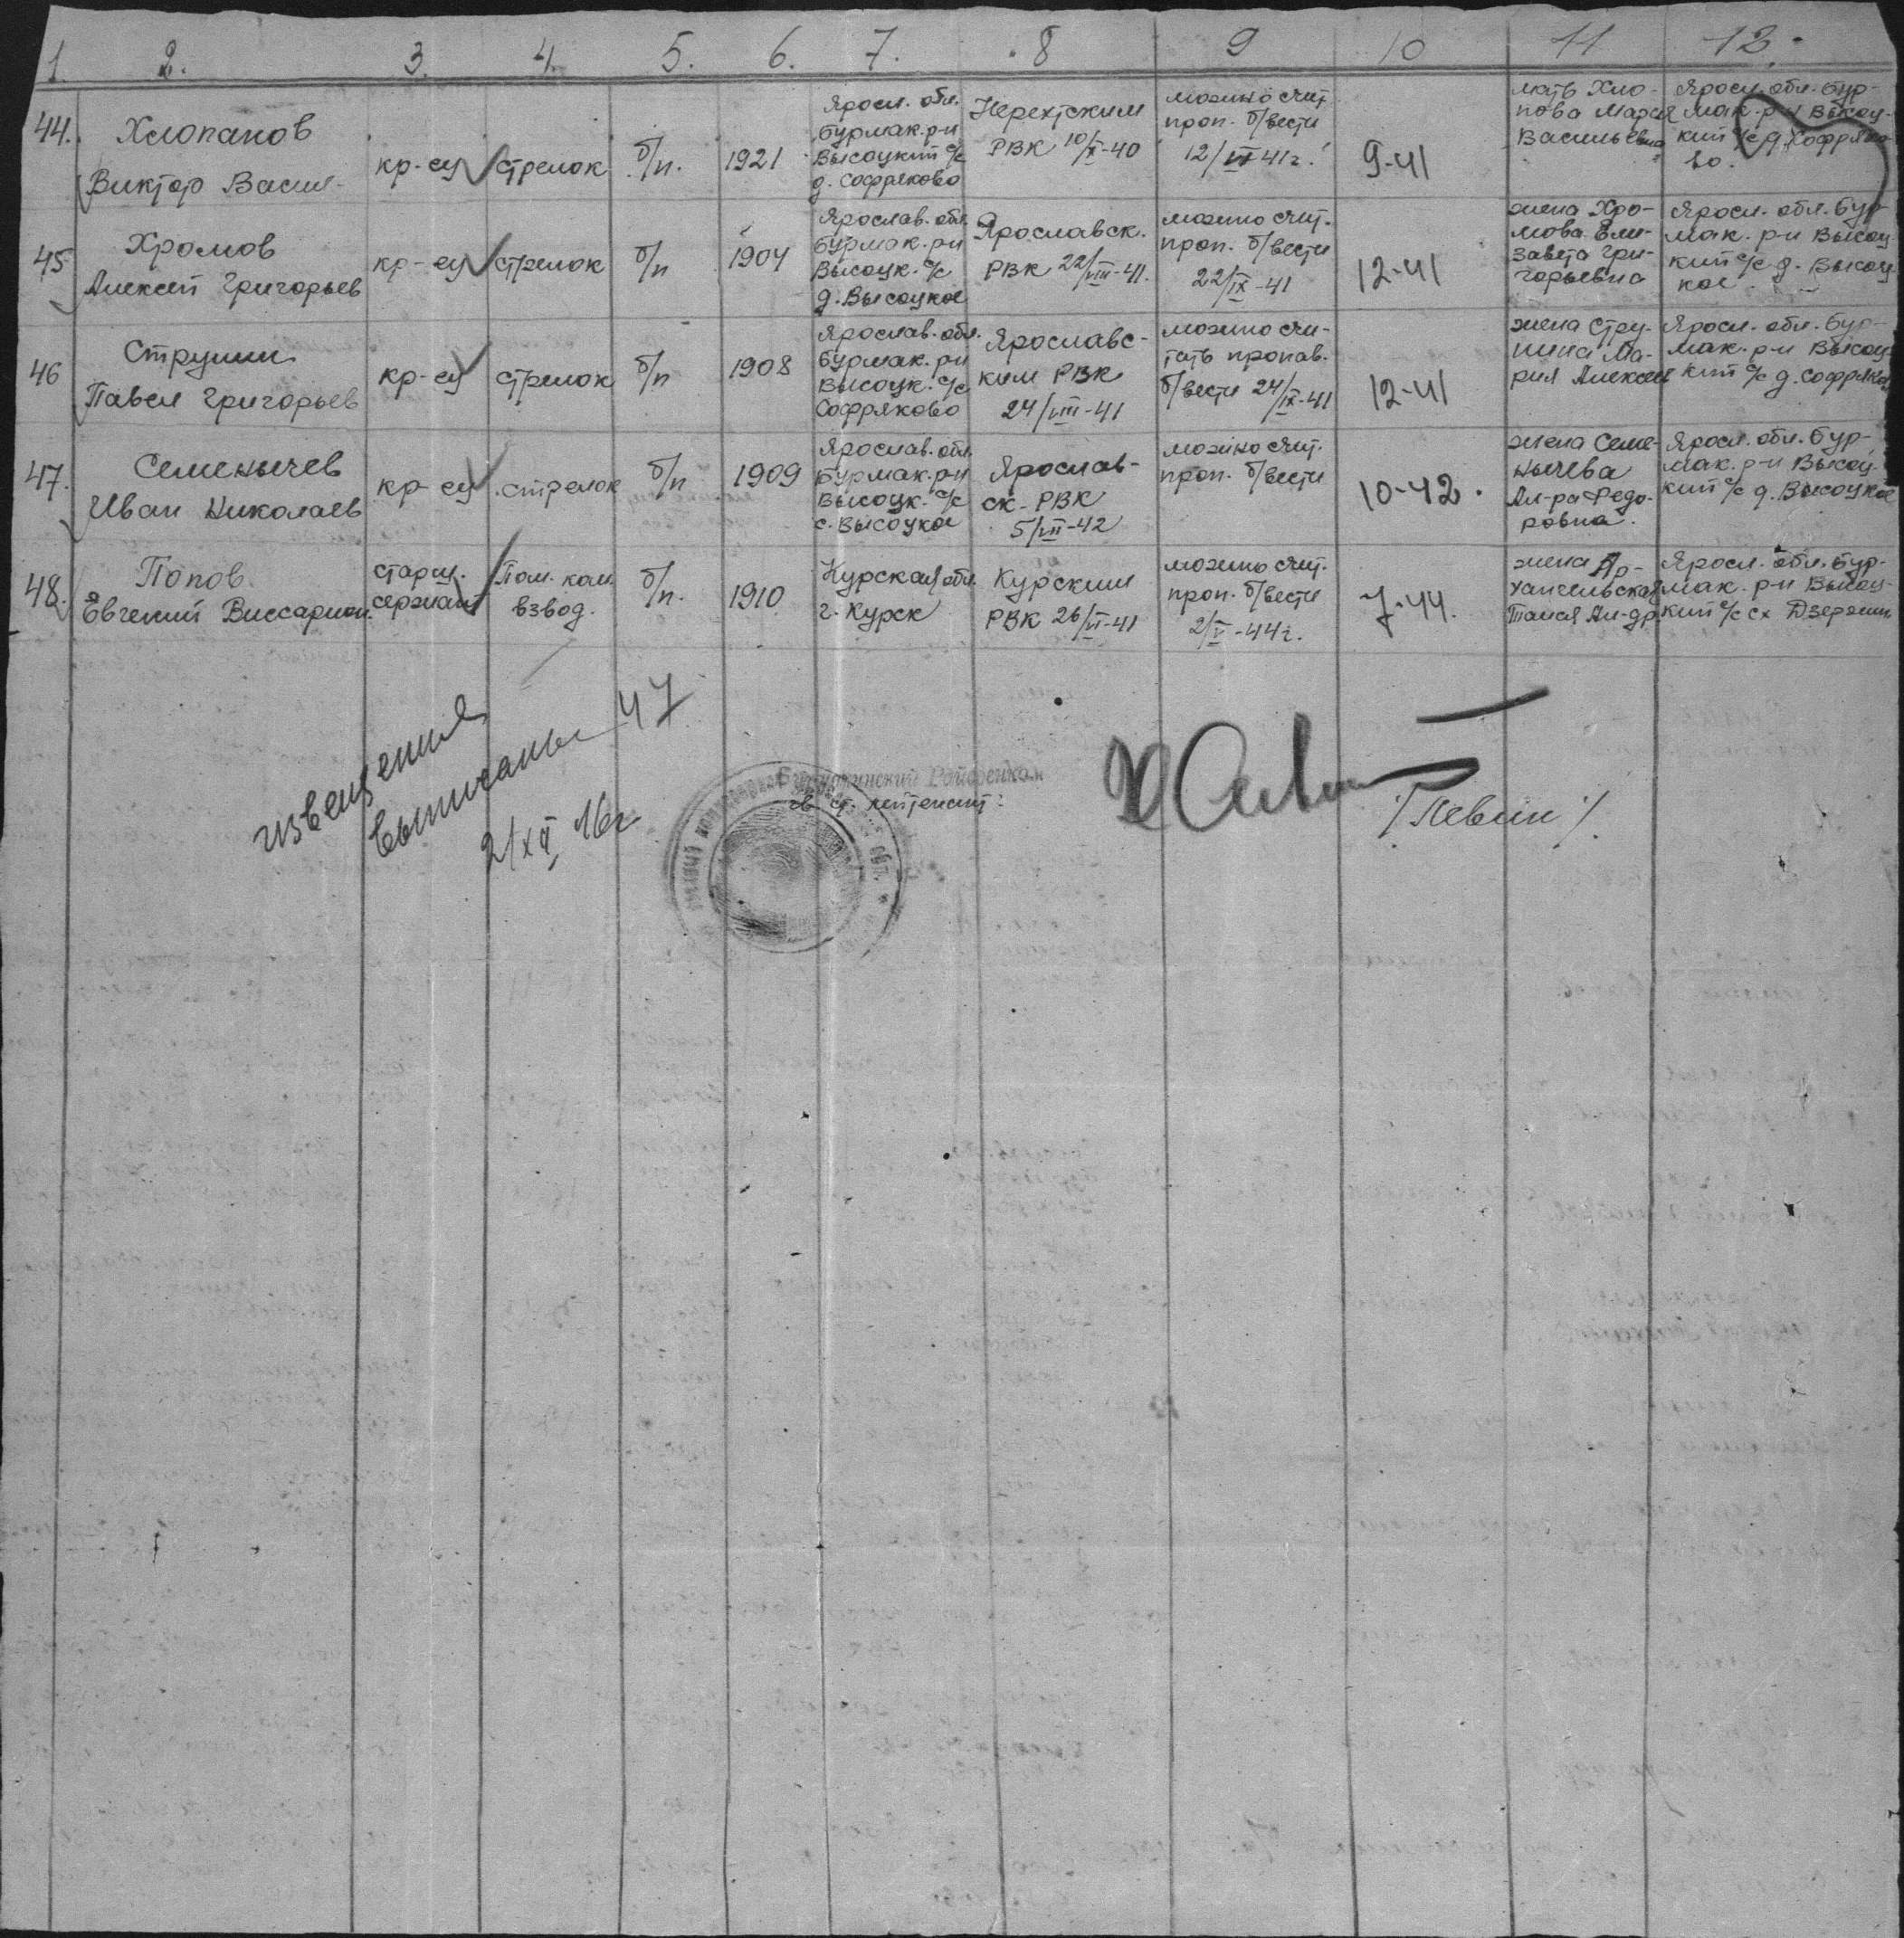 1. 2. 3. 4. 5. 6. 7. 8 9 10 11 12.
44.
Хлопанов
Виктор Васил-
кр-ец
стрелок
б/п.
1921
Яросл. обл.
Бурмак. р-н
Высоцкий с/с
д. Софряково
Нерехтским
РВК 10/X-40
можно счит.
проп. б/вести
12/IX 41 г.
9-41
мать Хло-
пова Мария
Васильевна
Яросл. обл. Бур-
мак. р-н Высоц-
кий с/с д. Софряко-
во.
45
Хромов
Алексей Григорьев
кр-ец
стрелок
б/п
1904
Ярослав. обл.
Бурмак. р-н
Высоцк. с/с
д. Высоцкое
Ярославск.
РВК 22/VIII-41.
можно счит.
проп. б/вести
22/IX-41
12-41
жена Хро-
мова Ели-
завета Гри-
горьевна
Яросл. обл. Бур-
мак. р-н Высоц-
кий с/с д. Высоц
кое
46
Струнин
Павел Григорьев
кр-ец
стрелок
б/п
1908
Ярослав. обл.
Бурмак. р-н
Высоцк. с/с
Софряково
Ярославс-
ким РВК
24/VIII-41
можно счи-
тать пропав.
б/вести 24/IX-41
12-41
жена Стру-
нина Ма-
рия Алексеев
Яросл. обл. Бур-
мак. р-н Высоц-
кий с/с д. Софряков
47.
Семенычев
Иван Николаев
кр-ец
стрелок
б/п
1909
Ярослав. обл.
Бурмак. р-н
Высоцк. с/с
с. Высоцкое
Ярослав-
ск. РВК
5/VII-42
можно счит.
проп. б/вести
10-42.
жена Семе-
нычева
Ал-ра Федо-
ровна.
Яросл. обл. Бур-
мак. р-н Высоц.
кий с/с д. Высоцкое
48.
Попов
Евгений Виссарион.
старш.
сержант
Пом. ком.
взвод.
б/п.
1910
Курская обл.
г. Курск
Курским
РВК 26/VI-41
можно счит.
проп. б/вести
2/V-44 г.
7-44.
жена Ар-
хангельская
Таися Ал-др.
Яросл. обл. Бур-
мак. р-н Высоц-
кий с/с сх Дзержин
извещения
выписаны 47
Бурмакинский Райвоенком
гв ст. лейтенант:
/Левин/.